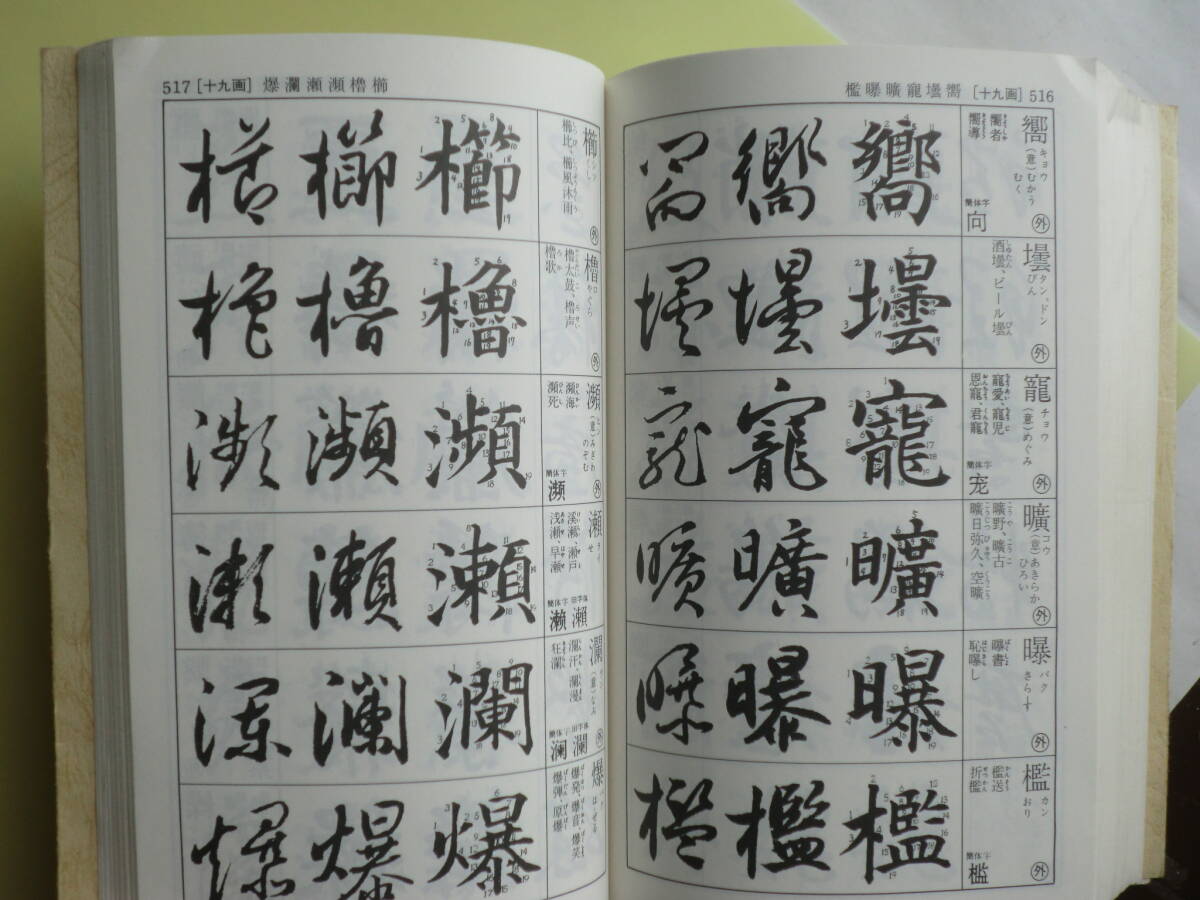 檻曝曠寵壜嚮 [十九画] 516
嚮 キョウ
(意)むかう
むく
外
嚮者
嚮導
簡体字
向
嚮 嚮 嚮
壜 タン、ドン
びん
外
酒壜、ビール壜
壜 壜 壜
寵 チョウ
(意)めぐみ
外
寵愛、寵児
恩寵、君寵
簡体字
宠
寵 寵 寵
曠 コウ
(意)あきらか
ひろい
外
曠野、曠古
曠日弥久、空曠
曠 曠 曠
曝 バク
さらす
外
曝書
恥曝し
曝 曝 曝
檻 カン
おり
外
檻送
折檻
簡体字
槛
檻 檻 檻
517 [十九画] 爆瀾瀬瀕櫓櫛
櫛
外
櫛比、櫛風沐雨
櫛 櫛 櫛
櫓 ロ
やぐら
外
櫓太鼓、櫓声
櫓歌
櫓 櫓 櫓
瀕 ヒン
(意)みぎわ
のぞむ
外
瀕海
瀕死
簡体字
濒
瀕 瀕 瀕
瀬
せ
渓瀬、瀬戸
浅瀬、早瀬
旧字体
瀨
簡体字
濑
瀬 瀬 瀬
瀾
(意)なみ
外
瀾汗、瀾漫
狂瀾
旧字体
瀾
簡体字
澜
瀾 瀾 瀾
爆
はぜる
爆発、爆音、爆笑
爆弾、原爆
爆 爆 爆